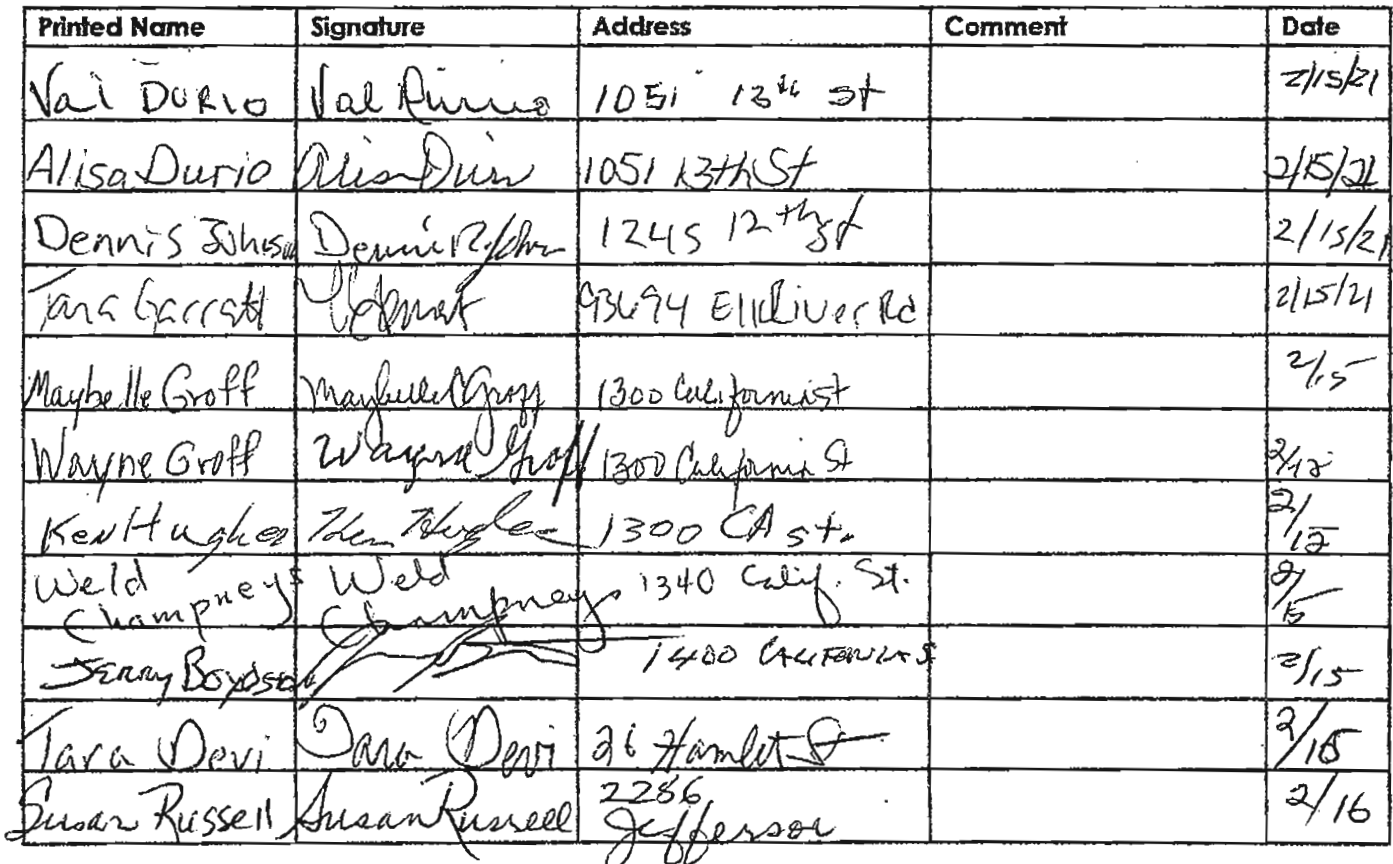 Printed Name Signature Address Comment Date
Val DURIO Val Durio 1051 13th St 2/15/21
Alisa Durio Alisa Durio 1051 13th St 2/15/21
Dennis Johnson Dennis R Johnson 1245 12th St 2/15/21
Tara Garratt 93694 Elk River Rd 2/15/21
Maybelle Groff Maybelle Groff 1300 California St 2/15
Wayne Groff Wayne Groff 1300 California St
Ken Hughes Ken Hughes 1300 CA St.
Weld Weld 1340 Calif. St. 2/15
Champneys Champneys
JERRY BOYDSTON 1400 CALIFORNIA S 2/15
Tara Devi Tara Devi 26 Hamlet St
Susan Russell Susan Russell 2286 2/16
Jefferson